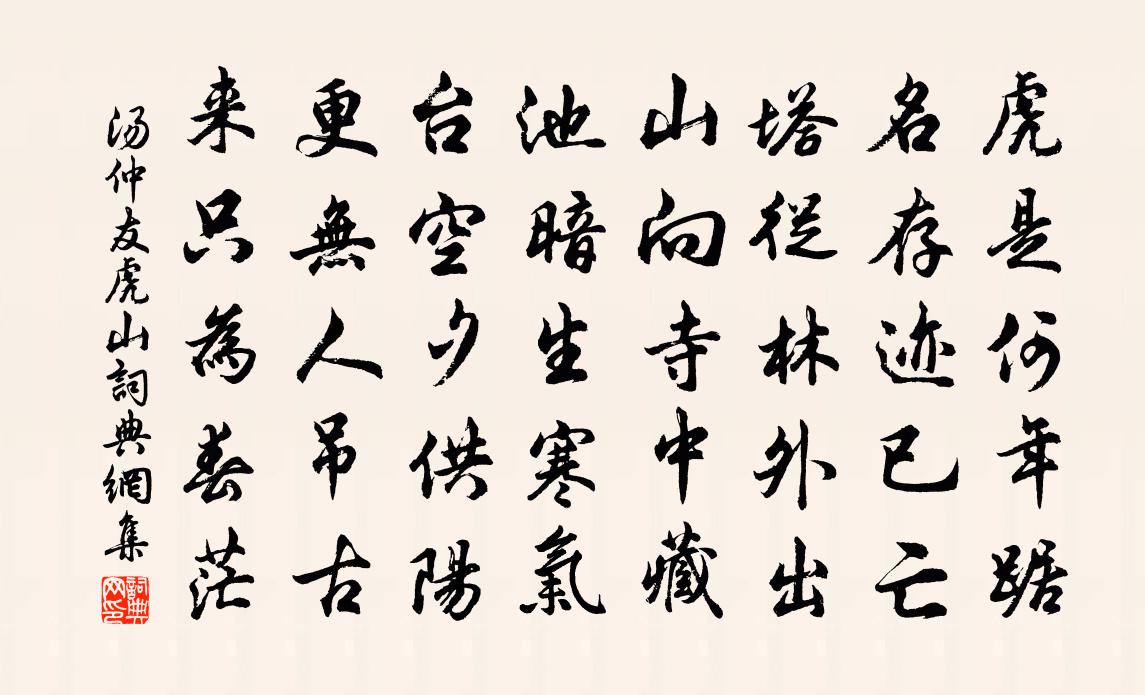 虎是何年踞
名存迹已亡
塔從林外出
山向寺中藏
池暗生寒氣
台空夕供陽
更無人吊古
来只為春茫
汤仲友虎山詞典網集
詞典网印